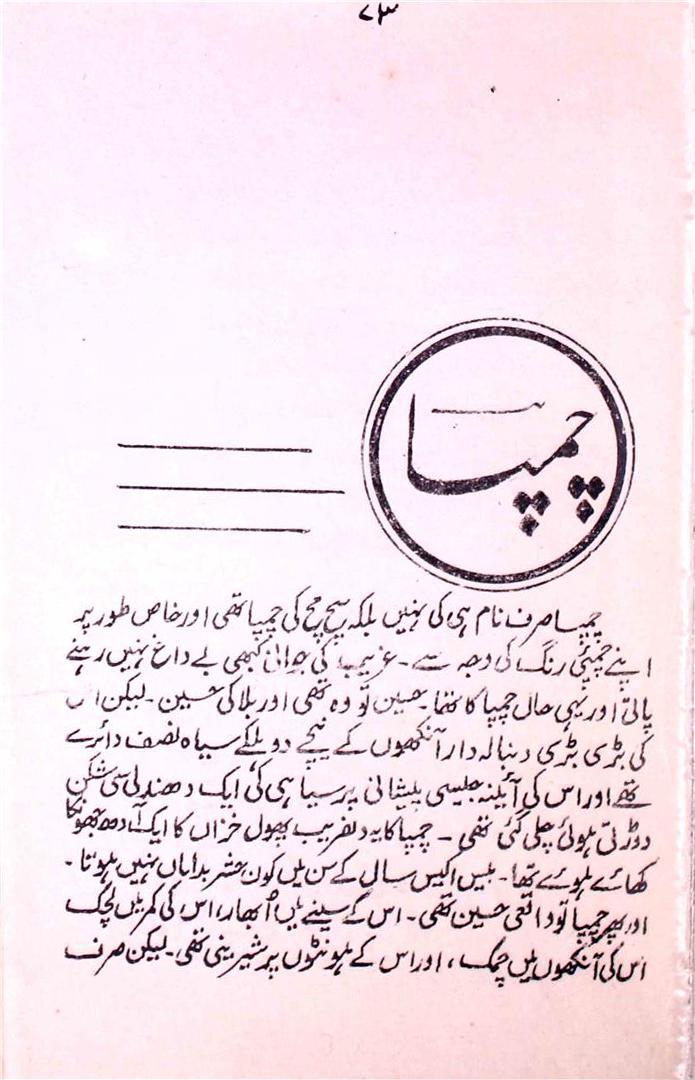 ۷۳
چمپا
چمپا صرف نام ہی کی نہیں بلکہ سچ مچ کی چمپا تھی اور خاص طور پہ
اپنے چمپئی رنگ کی وجہ سے ۔ غریب کی جوانی کبھی بے داغ نہیں رہنے
پاتی اور یہی حال چمپا کا تھا۔ حسین تو وہ تھی اور بلا کی حسین ۔ لیکن اس
کی بڑی بڑی دنبالہ دار آنکھوں کے نیچے دو ہلکے سیاہ نصف دائرے
تھے اور اس کی آئینہ جیسی پیشانی پر سیاہی کی ایک دھندلی سی شکن
دوڑتی ہوئی چلی گئی تھی ۔ چمپا کا یہ دلفریب پھول خزاں کا ایک آدھ جھونکا
کھائے ہوئے تھا۔ بیس اکیس سال کے سن میں کون حشر بداماں نہیں ہوتا ۔
اور پھر چمپا تو واقعی حسین تھی۔ اس کے سینے میں اُبھار، اس کی کمر میں لچک
اس کی آنکھوں میں چمک ، اور اس کے ہونٹوں پر شیرینی تھی۔ لیکن صرف